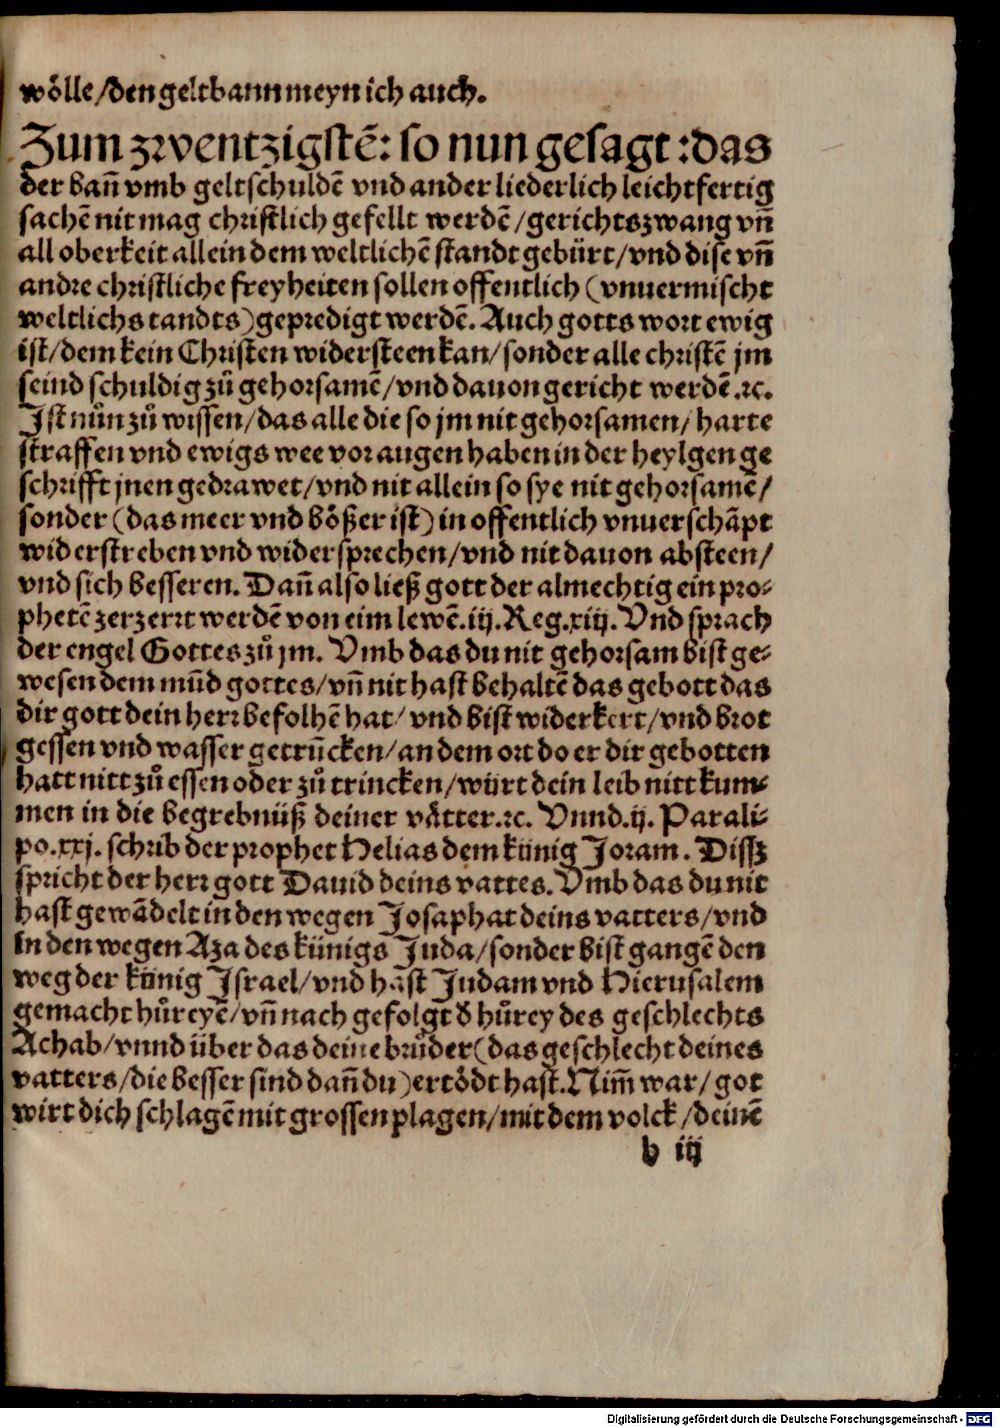 wölle/den geltbann meyn ich auch.
Zum zwentzigstē: so nun gesagt: das
der bañ vmb geltschuldē vnd ander liederlich leichtfertig
sachē nit mag christlich gefellt werdē/gerichtszwang vñ
all oberkeit allein dem weltlichē standt gebürt/vnd dise vñ
andre christliche freyheiten sollen offentlich (vnuermischt
weltlichs tandts) gepredigt werdē. Auch gotts wort ewig
ist/dem kein Christen widersteen kan/sonder alle christē jm
seind schuldig zů gehorsamē/vnd dauon gericht werdē.ꝛc.
Ist nůn zů wissen/das alle die so jm nit gehorsamen/harte
straffen vnd ewigs wee vor augen haben in der heylgen ge
schrifft jnen gedrawet/vnd nit allein so sye nit gehorsamē/
sonder (das meer vnd bößer ist) in offentlich vnuerschāpt
widerstreben vnd widersprechen/vnd nit dauon absteen/
vnd sich besseren. Dañ also ließ gott der almechtig ein pro⸗
phetē zerzerrt werdē von eim lewē.iij.Reg.xiij. Vnd sprach
der engel Gottes zů jm. Vmb das du nit gehorsam bist ge⸗
wesen dem mūd gottes/vñ nit hast behaltē das gebott das
dir gott dein herr befolhē hat/vnd bist widerkert/vnd brot
gessen vnd wasser getrūcken/an dem ort do er dir gebotten
hatt nitt zů essen oder zů trincken/würt dein leib nitt kum⸗
men in die begrebnüß deiner vätter.ꝛc. Vnnd.ij. Parali⸗
po.xxj. schrib der prophet Helias dem künig Joram. Dissz
spricht der herr gott Dauid deins vattes. Vmb das du nit
hast gewādelt in den wegen Josaphat deins vatters/vnd
in den wegen Aza des künigs Juda/sonder bist gangē den
weg der künig Israel/vnd hāst Judam vnd Hierusalem
gemacht hůreyē/vñ nach gefolgt d̄ hůrey des geschlechts
Achab/vnnd über das deine brůder (das geschlecht deines
vatters/die besser sind dañ du) ertödt hast. Nim̄ war/got
wirt dich schlagē mit grossen plagen/mit dem volck/deinē
b iij
Digitalisierung gefördert durch die Deutsche Forschungsgemeinschaft - DFG